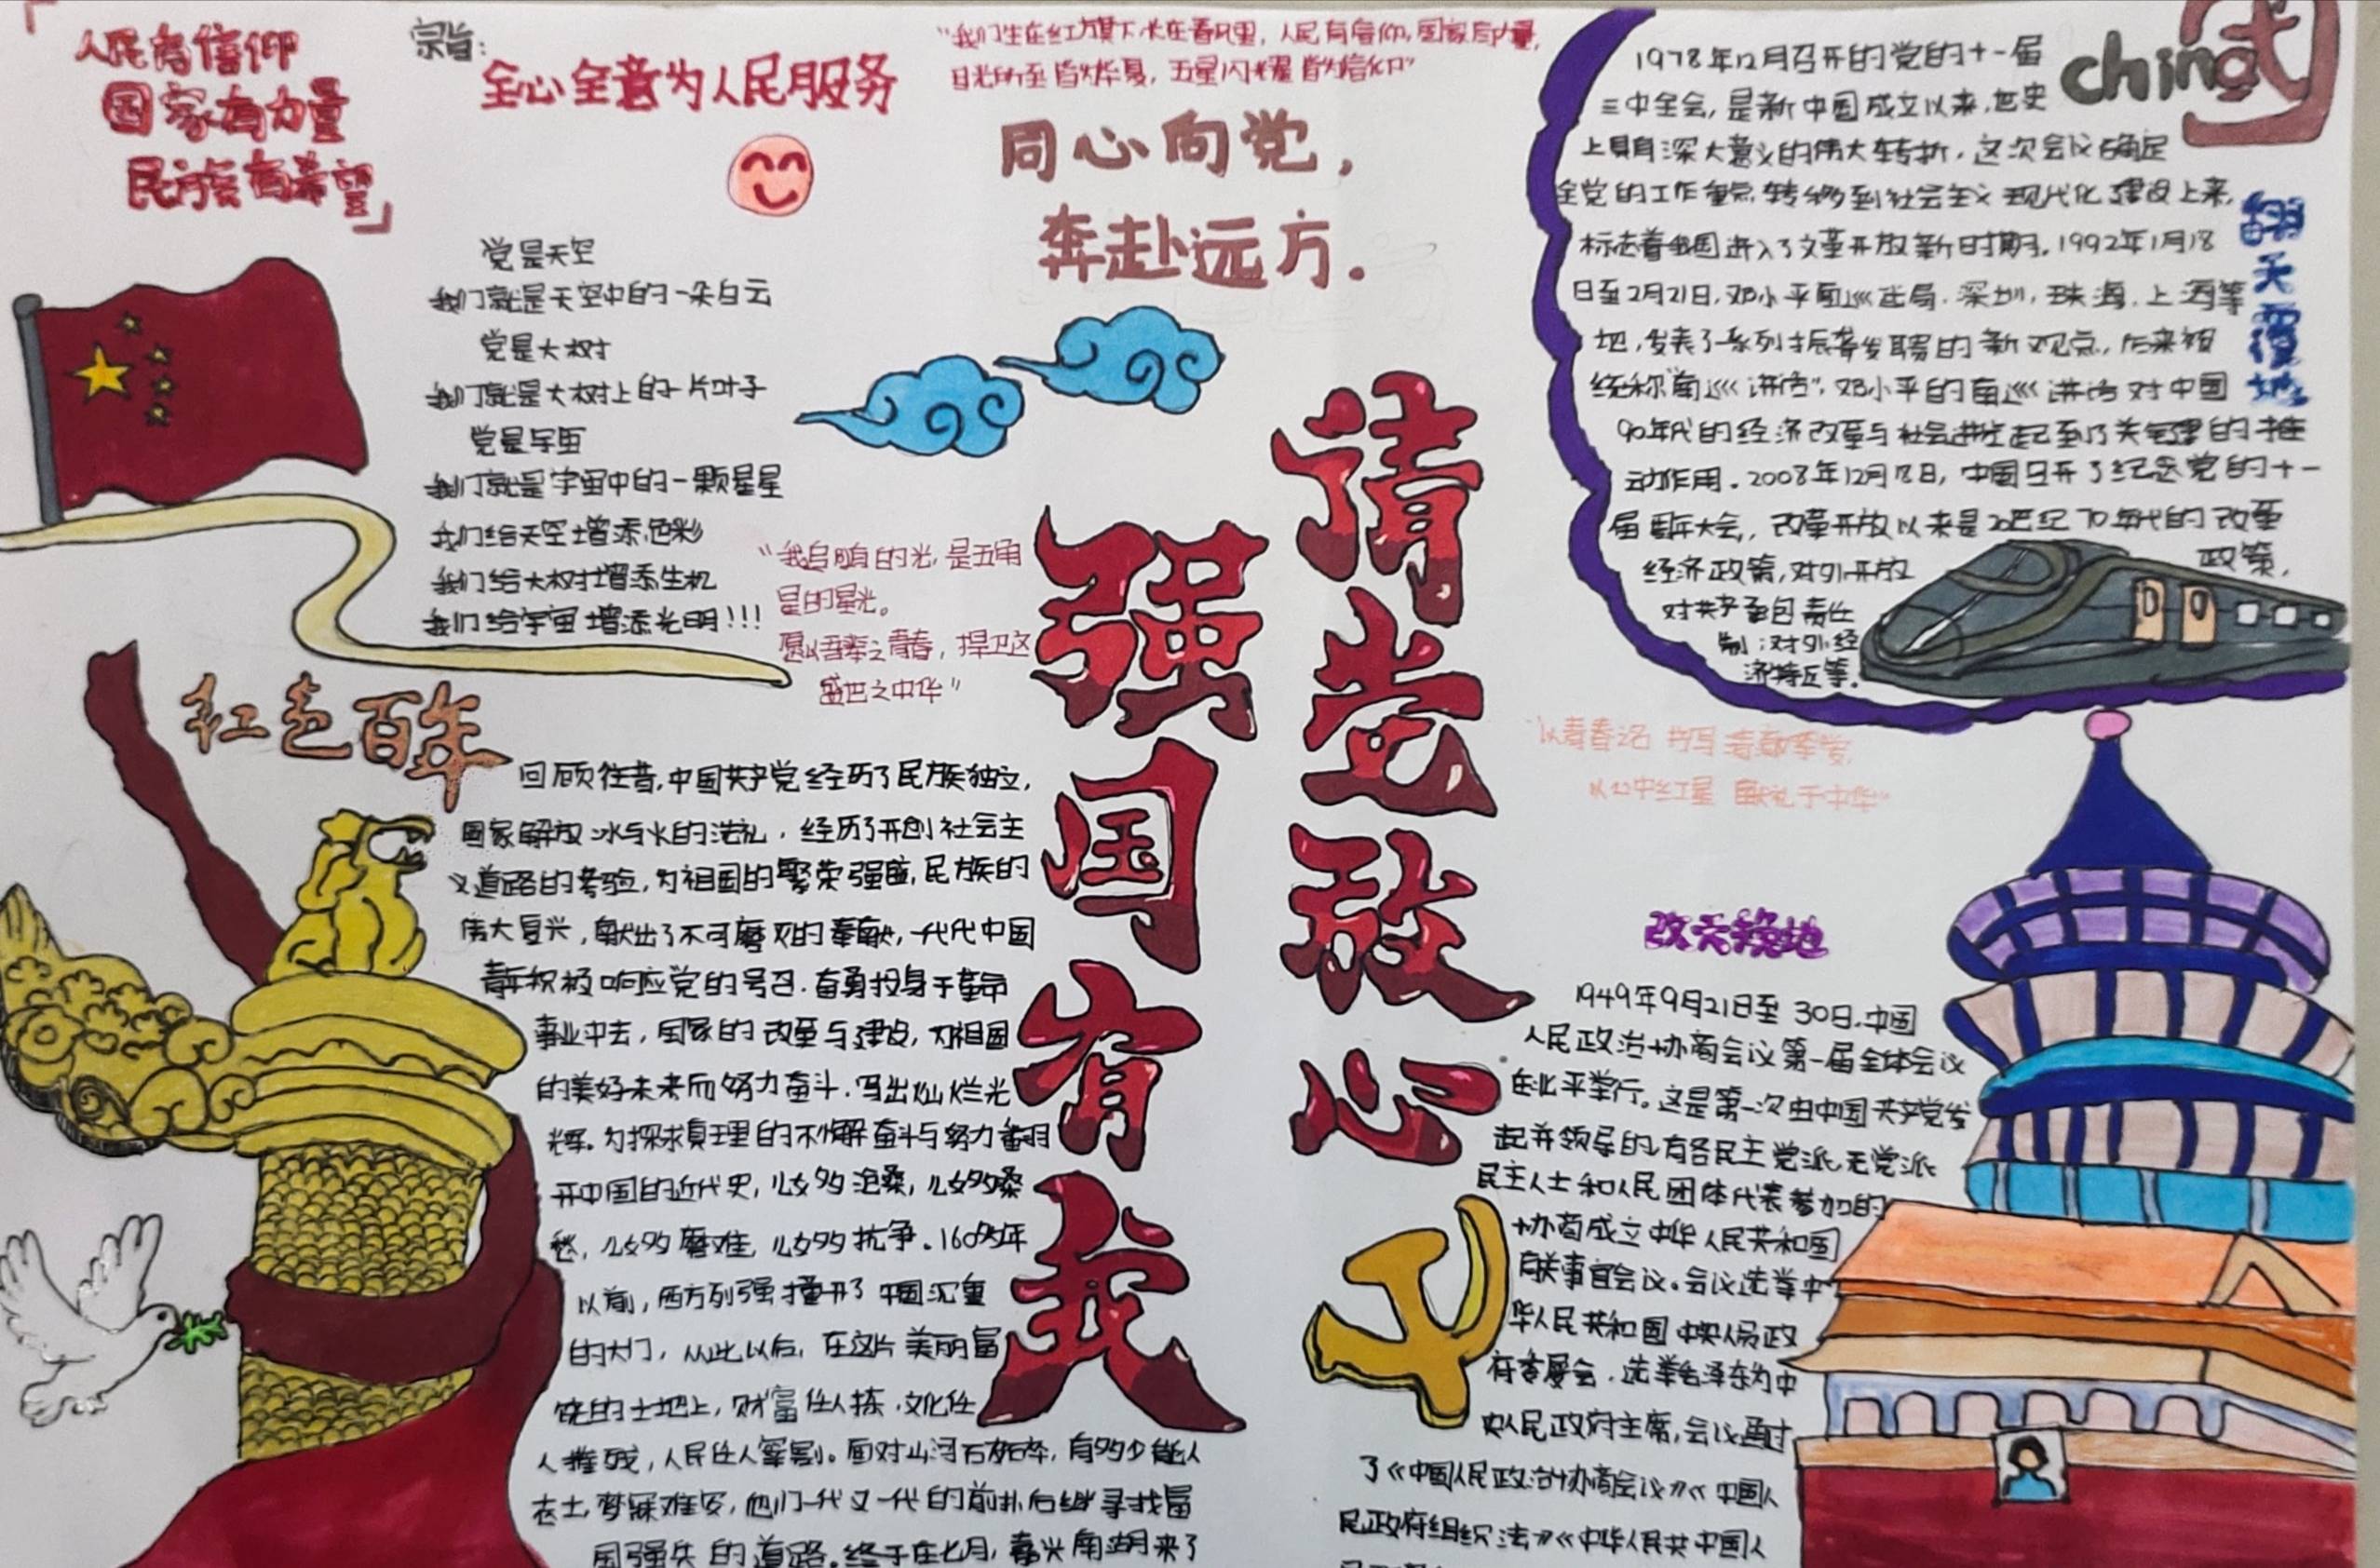 「人民有信仰
国家有力量
民族有希望」
宗旨:
全心全意为人民服务
“我们生在红旗下长在春风里,人民有信仰,国家有力量,
目光所至皆为华夏,五星闪耀皆为信仰”
同心向党,
奔赴远方。
党是天空
我们就是天空中的一朵白云
党是大树
我们就是大树上的一片叶子
党是宇宙
我们就是宇宙中的一颗星星
我们给天空增添色彩
我们给大树增添生机
我们给宇宙增添光明!!!
“我自明的光,是五角
星的星光。
愿以吾辈之青春,捍卫这
盛世之中华”
请党放心
强国有我
红色百年
回顾往昔,中国共产党经历了民族独立,
国家解放冰与火的洗礼,经历了开创社会主
义道路的考验,为祖国的繁荣强盛,民族的
伟大复兴,献出了不可磨灭的奉献,一代代中国
青年积极响应党的号召.奋勇投身于革命
事业中去,国家的改革与建设,为祖国
的美好未来而努力奋斗.写出灿烂光
辉。为探求真理的不懈奋斗与努力翻
开中国的近代史,几多沧桑,几多愁
愁,几多磨难,几多抗争。160多年
以前,西方列强撞开了中国沉重
的大门,从此以后,在这片美丽富
饶的土地上,财富任人掠.文化任
人摧残,人民任人宰割。面对山河破碎,有多少能人
志士梦寐难安,他们一代又一代的前扑后继寻找富
国强兵的道路.终于在七月,嘉兴南湖来了
china
国
翻天覆地
1978年12月召开的党的十一届
三中全会,是新中国成立以来,世史
上具有深大意义的伟大转折,这次会议确定
全党的工作重点转移到社会主义现代化建设上来,
标志着我国进入了文革开放新时期.1992年1月18
日至2月21日,邓小平南巡武昌.深圳,珠海,上海等
地,发表了系列振聋发聩的新观点,后来被
统称“南巡讲话”,邓小平的南巡讲话对中国
90年代的经济改革与社会进步起到了关键的推
动作用.2008年12月18日,中国召开了纪念党的十一
届周年大会,改革开放以来是20世纪70年代的改革
政策,
经济政策,对外开放
对共产承包责任
制;对外经
济特区等.
“以青春之名 书写 奉献季党,
以心中红星 献礼于中华”
改天换地
1949年9月21日至30日,中国
人民政治协商会议第一届全体会议
在北平举行。这是第一次由中国共产党发
起并领导的,有各民主党派,无党派
民主人士和人民团体代表参加的
协商成立中华人民共和国
有关事宜会议。会议选举中
华人民共和国中央人民政
府委员会.选举毛泽东为中
央人民政府主席,会议通过
了《中国人民政治协商会议》《中国人
民政府组织法》《中华人民共中国人